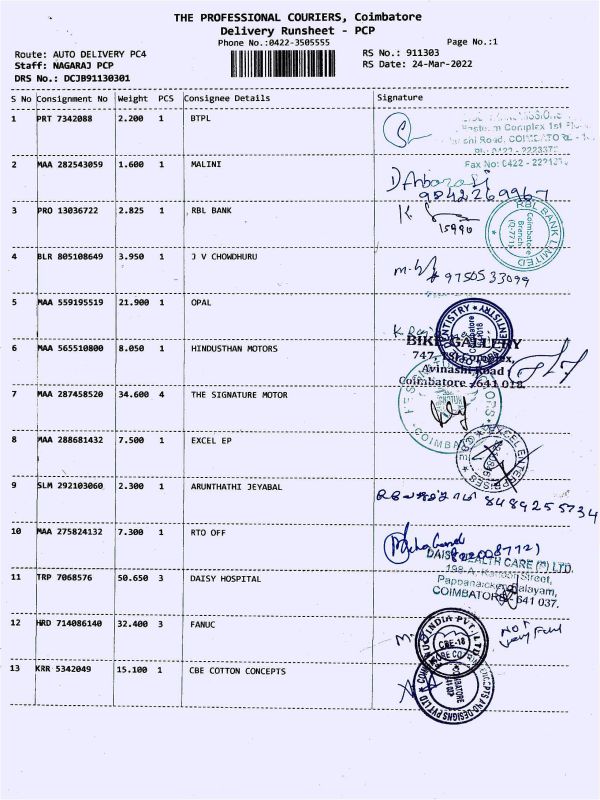 THE PROFESSIONAL COURIERS, Coimbatore
Delivery Runsheet - PCP
Phone No.:0422-3505555
Page No.:1
Route: AUTO DELIVERY PC4
RS No.: 911303
Staff: NAGARAJ PCP
RS Date: 24-Mar-2022
DRS No.: DCJB91130301
S No Consignment No Weight PCS Consignee Details Signature
1 PRT 7342088 2.200 1 BTPL
Eastern Complex 1st
Road, COIMBATORE
Fax No: 0422 -
2 MAA 282543059 1.600 1 MALINI
9842269967
3 PRO 13036722 2.825 1 RBL BANK
15990
RBL BANK LIMITED
Coimbatore
Branch
4 BLR 805108649 3.950 1 J V CHOWDHURU
9750533099
5 MAA 559195519 21.900 1 OPAL
DENTISTRY
Coimbatore
BIKE GALLERY
6 MAA 565510800 8.050 1 HINDUSTHAN MOTORS
747, Complex,
Avinashi Road
Coimbatore 641 018.
7 MAA 287458520 34.600 4 THE SIGNATURE MOTOR
COIMB
8 MAA 288681432 7.500 1 EXCEL EP
EXCEL ENTERPRISES
9 SLM 292103060 2.300 1 ARUNTHATHI JEYABAL
8489255734
10 MAA 275824132 7.300 1 RTO OFF
DAISY HEALTH CARE (P) LTD.
11 TRP 7068576 50.650 3 DAISY HOSPITAL
Street,
Pappanaickenpalayam,
COIMBATORE - 641 037.
12 HRD 714086140 32.400 3 FANUC
FANUC INDIA PVT. LTD
CBE-18
NOT
very Full
13 KRR 5342049 15.100 1 CBE COTTON CONCEPTS
CONCEPTS AND DESIGNS PVT LTD